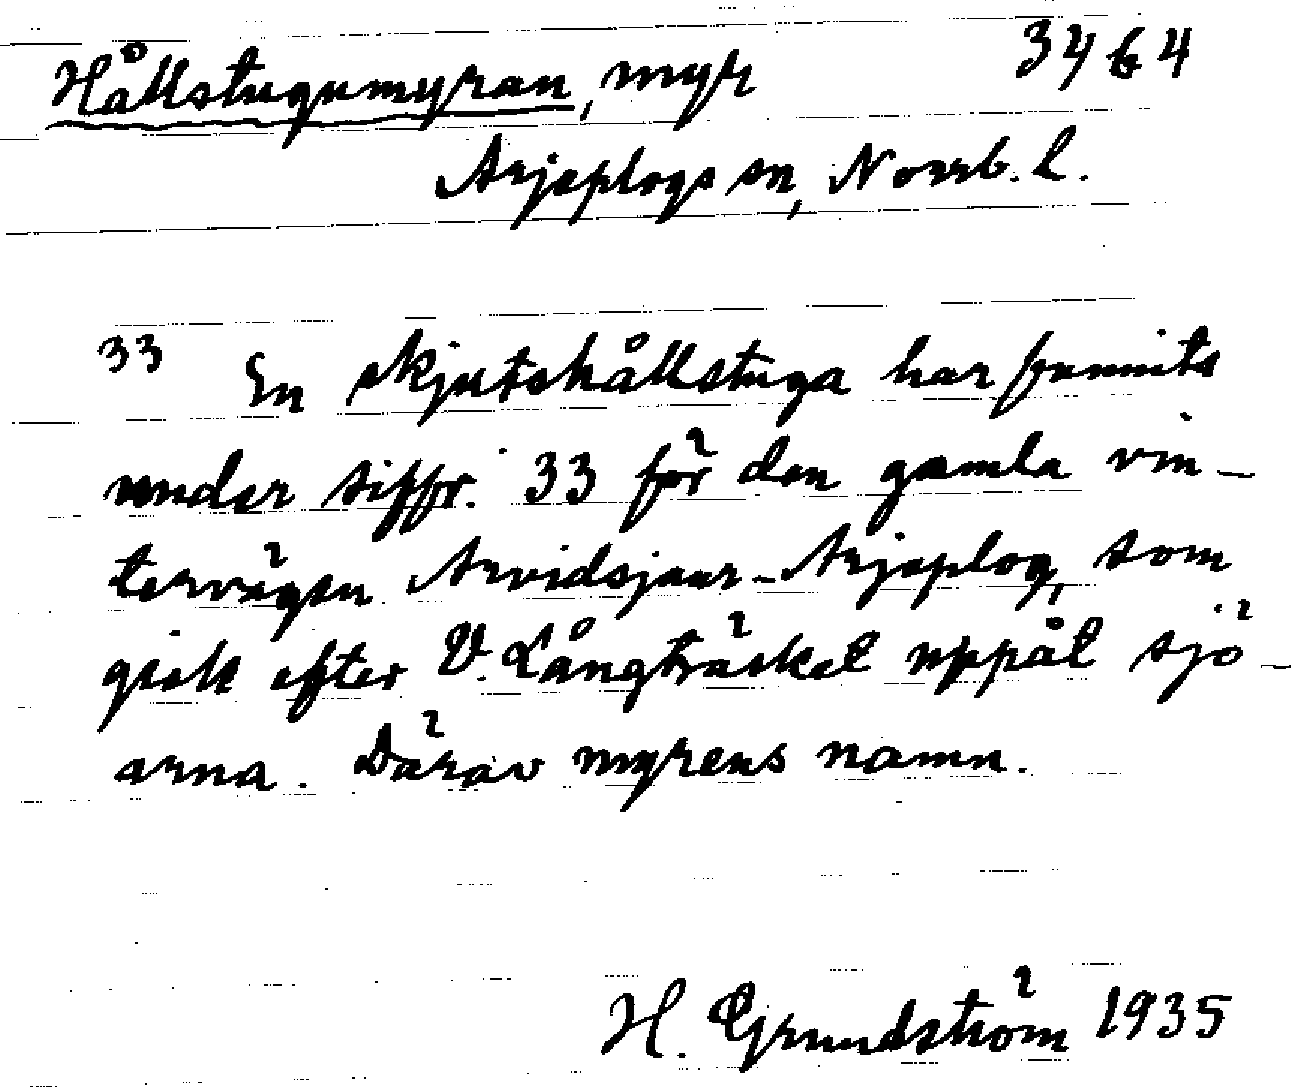 Hållstugumyran, myr 3464
Arjeplogs sn, Norrb. l.
33 En skjutshållstuga har funnits
under siffr. 33 för den gamla vin-
tervägen Arvidsjaur-Arjeplog, som
gick efter V. Långträsket uppåt sjö-
arna. Därav myrens namn.
H. Grundström 1935